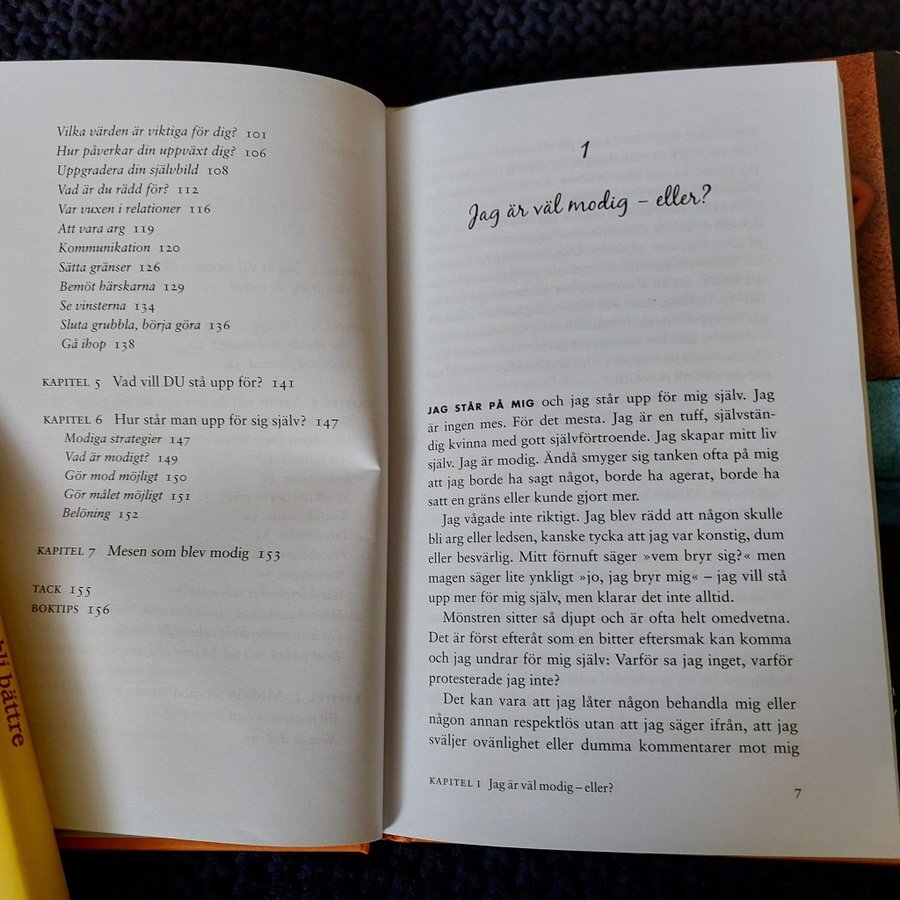 Vilka värden är viktiga för dig? 101
Hur påverkar din uppväxt dig? 106
Uppgradera din självbild 108
Vad är du rädd för? 112
Var vuxen i relationer 116
Att vara arg 119
Kommunikation 120
Sätta gränser 126
Bemöt härskarna 129
Se vinsterna 134
Sluta grubbla, börja göra 136
Gå ihop 138
KAPITEL 5 Vad vill DU stå upp för? 141
KAPITEL 6 Hur står man upp för sig själv? 147
Modiga strategier 147
Vad är modigt? 149
Gör mod möjligt 150
Gör målet möjligt 151
Belöning 152
KAPITEL 7 Mesen som blev modig 153
TACK 155
BOKTIPS 156
bli bättre
1
Jag är väl modig – eller?
JAG STÅR PÅ MIG och jag står upp för mig själv. Jag
är ingen mes. För det mesta. Jag är en tuff, självstän-
dig kvinna med gott självförtroende. Jag skapar mitt liv
själv. Jag är modig. Ändå smyger sig tanken ofta på mig
att jag borde ha sagt något, borde ha agerat, borde ha
satt en gräns eller kunde gjort mer.
Jag vågade inte riktigt. Jag blev rädd att någon skulle
bli arg eller ledsen, kanske tycka att jag var konstig, dum
eller besvärlig. Mitt förnuft säger »vem bryr sig?« men
magen säger lite ynkligt »jo, jag bryr mig« – jag vill stå
upp mer för mig själv, men klarar det inte alltid.
Mönstren sitter så djupt och är ofta helt omedvetna.
Det är först efteråt som en bitter eftersmak kan komma
och jag undrar för mig själv: Varför sa jag inget, varför
protesterade jag inte?
Det kan vara att jag låter någon behandla mig eller
någon annan respektlös utan att jag säger ifrån, att jag
sväljer ovänlighet eller dumma kommentarer mot mig
KAPITEL 1 Jag är väl modig – eller?
7